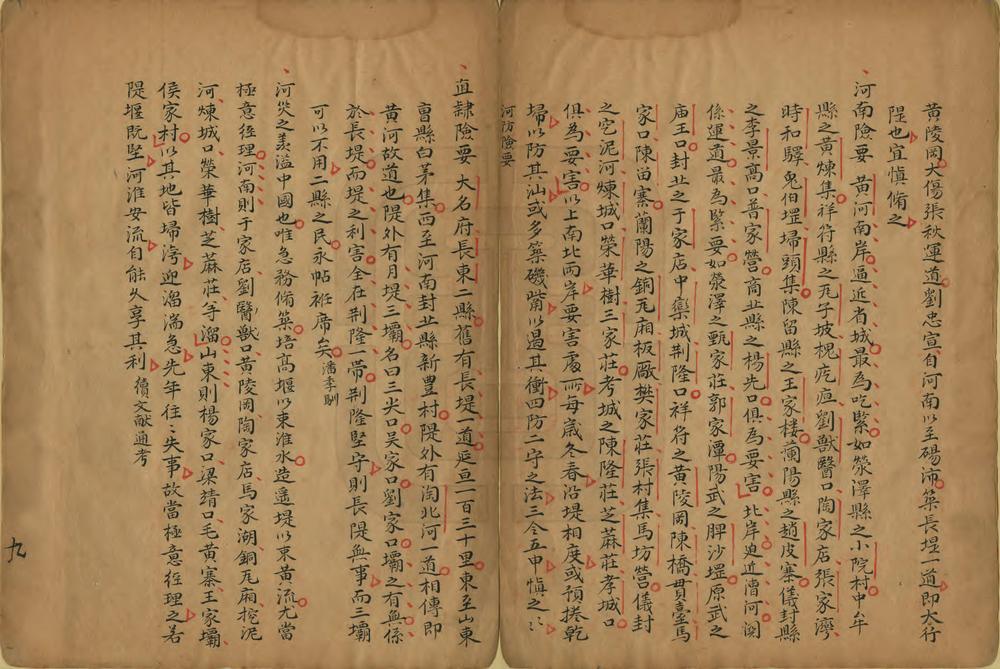 黄陵岡大傷張秋運道劉忠宣自河南以至碭沛築長堤一道即太行
隄也宜慎脩之
河南險要 黄河南岸逼近省城最為吃緊如滎澤縣之小院村中牟
縣之黄煉集祥符縣之兎子坡槐疙疸劉獸醫口陶家店張家灣
時和驛兔伯堽埽頭集陳留縣之王家樓蘭陽縣之趙皮寨儀封縣
之李景高口普家營商丘縣之楊先口俱為要害北岸迫近漕河関
係運道最為緊要如滎澤之甄家荘郭家潭陽武之脾沙堽原武之
庙王口封丘之于家店中欒城荆隆口祥符之黄陵岡陳橋貫臺馬
家口陳苗寨蘭陽之銅瓦廂板廠樊家荘張村集馬坊營儀封
之穵泥河煉城口榮華樹三家荘考城之陳隆荘芝蔴荘孝城口
俱為要害以上南北兩岸要害處所每歲冬春沿堤相度或預捲乾
埽以防其汕或多築磯嘴以遏其衝四防二守之法三令五申慎之〻
河防險要
直隸險要 大名府長東二縣舊有長堤一道延亘一百三十里東至山東
曺縣白茅集而至河南封丘縣新豊村隄外有淘北河一道相傳即
黄河故道也隄外有月堤三壩名曰三尖口吴家口劉家口壩之有無係
於長堤而堤之利害全在荆隆一帶荆隆堅守則長隄無事而三壩
可以不用二縣之民永帖袵席矣潘季馴
河災之羡溢中國也唯急務脩築培高堰以束淮水造遥堤以束黄流尤當
極意徑理河南則于家店劉醫獸口黄陵岡陶家店馬家湖銅瓦廂挖泥
河煉城口榮華樹芝蔴荘等溜山東則楊家口梁靖口毛黄寨王家壩
侯家村以其地皆埽濘迎溜湍急先年往〻失事故當極意徑理之若
隄堰既堅河淮安流自能久享其利 續文獻通考
九